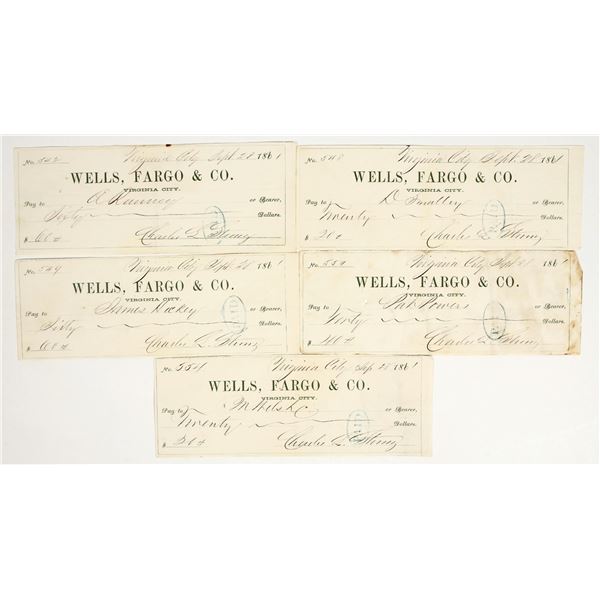 No. 542 Virginia City Sept 28 1861
WELLS, FARGO & CO.
VIRGINIA CITY.
Pay to or Bearer,
Dollars.
$ 60 Charles L. Strong
No. 548 Virginia City Sept. 28 1861
WELLS, FARGO & CO.
VIRGINIA CITY.
Pay to D Smalley or Bearer,
Twenty Dollars.
$ 20 Charles L. Strong
PAID
No. 549 Virginia City Sept 28 1861
WELLS, FARGO & CO.
VIRGINIA CITY.
Pay to James Hickey or Bearer,
Sixty Dollars.
$ 60 Charles L. Strong
PAID
No. 550 Virginia City Sept 1861
WELLS, FARGO & CO.
VIRGINIA CITY.
Pay to Pat Powers or Bearer,
Forty Dollars.
$ 40 Charles L. Strong
No. 554 Virginia City Sep 28 1861
WELLS, FARGO & CO.
VIRGINIA CITY.
Pay to or Bearer,
Twenty Dollars.
$ 20 Charles L. Strong
PAID